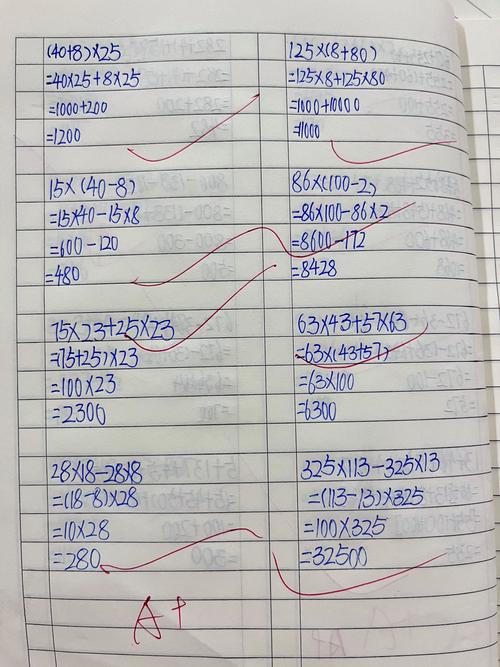 (40+8)×25
=40×25+8×25
=1000+200
=1200
125×(8+80)
=125×8+125×80
=1000+10000
=11000
15×(40-8)
=15×40-15×8
=600-120
=480
86×(100-2)
=86×100-86×2
=8600-172
=8428
75×23+25×23
=(75+25)×23
=100×23
=2300
63×43+57×63
=63×(43+57)
=63×100
=6300
28×18-28×8
=(18-8)×28
=10×28
=280
325×113-325×13
=(113-13)×325
=100×325
=32500
A+